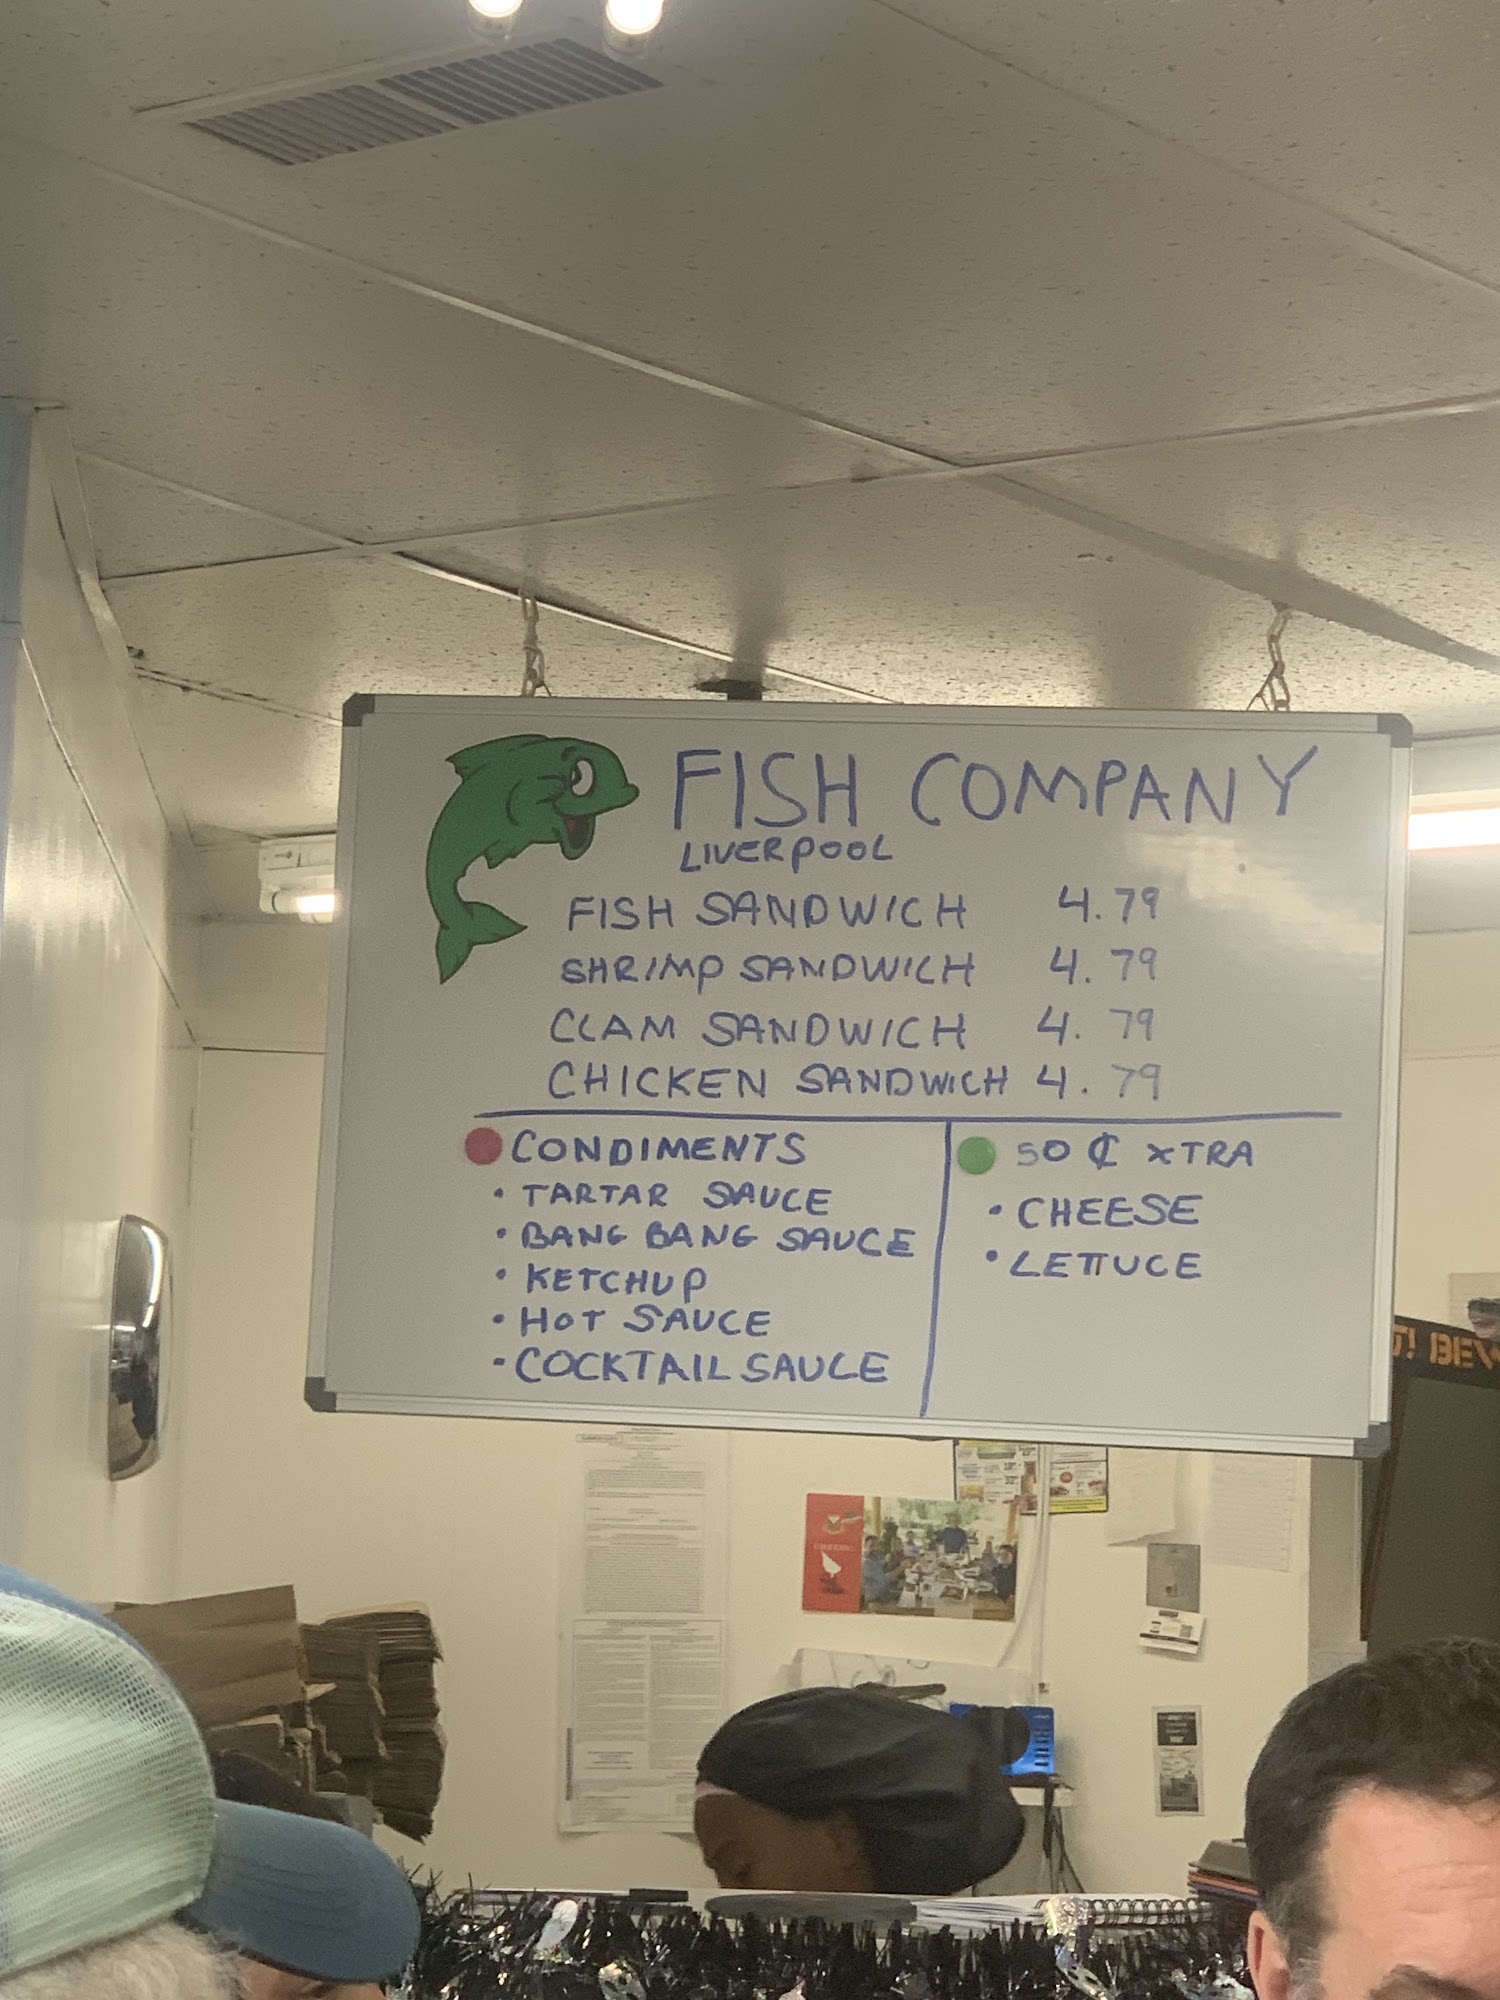 FISH COMPANY
LIVERPOOL
FISH SANDWICH 4.79
SHRIMP SANDWICH 4.79
CLAM SANDWICH 4.79
CHICKEN SANDWICH 4.79
CONDIMENTS
• TARTAR SAUCE
• BANG BANG SAUCE
• KETCHUP
• HOT SAUCE
• COCKTAIL SAUCE
50 ¢ XTRA
• CHEESE
• LETTUCE